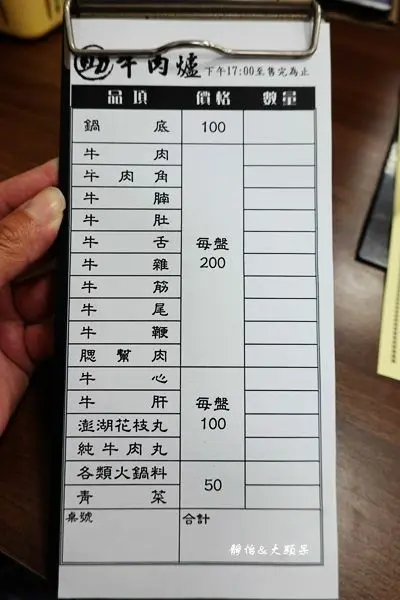 牛肉爐 下午17:00至售完為止
品項 價格 數量
鍋底 100
牛肉
牛肉角
牛腩
牛肚
牛舌
牛雜
牛筋
牛尾
牛鞭
腮幫肉
每盤
200
牛心
牛肝
澎湖花枝丸
純牛肉丸
每盤
100
各類火鍋料
青菜
50
桌號 合計
靜怡&大顆呆